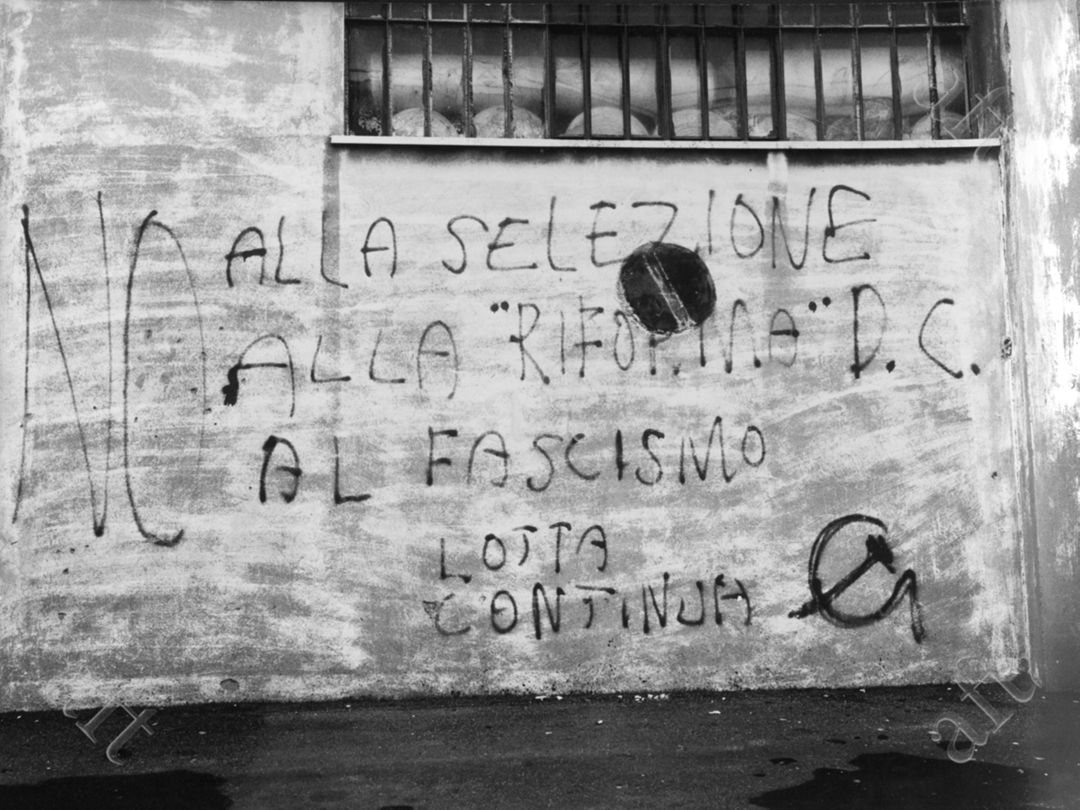 NO ALLA SELEZIONE
ALLA "RIFORMA" D.C.
AL FASCISMO
LOTTA
CONTINUA